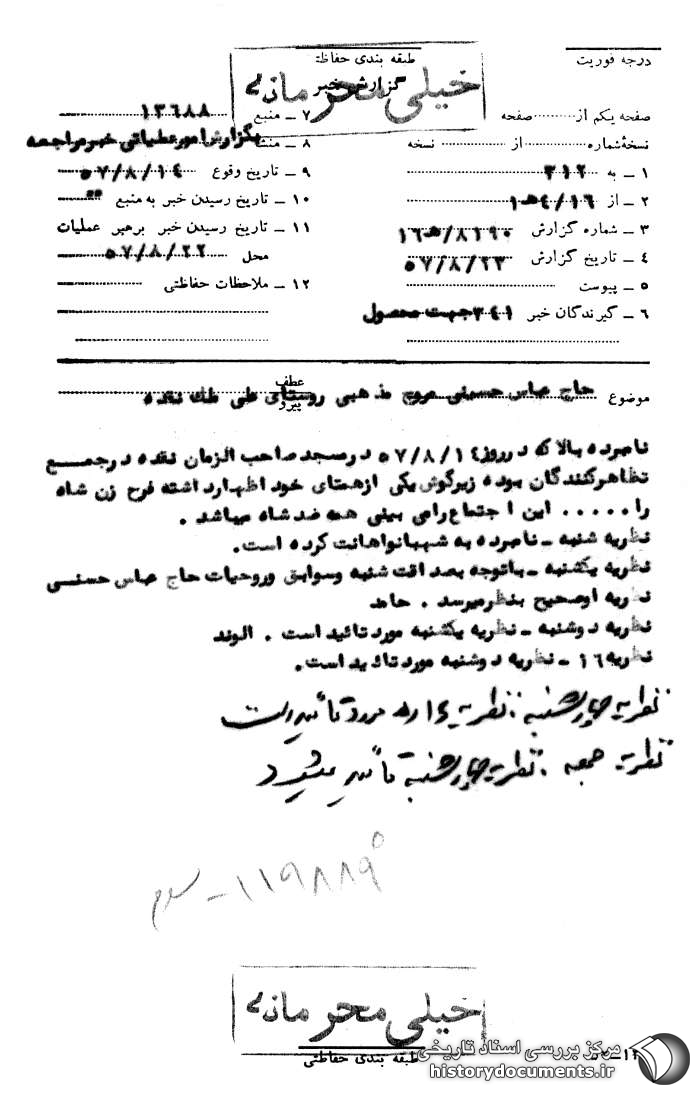 درجه فوریت
طبقه بندی حفاظتی
خیلی محرمانه
گزارش خبر
صفحه یکم از صفحه
۷ ـ منبع ۱۳۶۸۸
نسخهٔ شماره از نسخه
۸ ـ منشأ بگزارش امور عملیاتی خبر مراجعه
۱ ـ به ۳۱۲
۹ ـ تاریخ وقوع ۵۷/۸/۱۴
۲ ـ از ۱۶/ ۴ ه‍ ۱
۱۰ ـ تاریخ رسیدن خبر به منبع ""
۳ ـ شماره گزارش ۸۲۹۰/ ه‍ ۱۶
۱۱ ـ تاریخ رسیدن خبر برهبر عملیات
محل ۵۷/۸/۲۲
۴ ـ تاریخ گزارش ۵۷/۸/۲۳
۵ ـ پیوست
۱۲ ـ ملاحظات حفاظتی
۶ ـ گیرندگان خبر ۳۴۱ جهت محصول
موضوع حاج عباس حسینی مروج مذهبی روستای علی ملک نقده
عطف
پیرو
نامبرده بالا که در روز ۵۷/۸/۱۴ در مسجد صاحب الزمان نقده در جمع
تظاهرکنندگان بوده زیرگوش یکی ازهمتای خود اظهار داشته فرح زن شاه
را ..... این اجتماع رامی بینی همه ضد شاه میباشد .
نظریه شنبه ـ نامبرده به شهبانواهانت کرده است.
نظریه یکشنبه ـ باتوجه بصداقت شنبه وسوابق وروحیات حاج عباس حسنی
نظریه اوصحیح بنظرمیرسد . حامد
نظریه دوشنبه ـ نظریه یکشنبه مورد تائید است . الوند
نظریه ۱۶ ـ نظریه دوشنبه مورد تائید است.
نظریه چهارشنبه : نظریه ۱۶ ه‍ مورد تأیید است
نظریه جمعه : نظریه چهارشنبه تأیید میشود
۱۱۹۸۸۹
خیلی محرمانه
طبقه بندی حفاظتی
مرکز بررسی اسناد تاریخی
historydocuments.ir